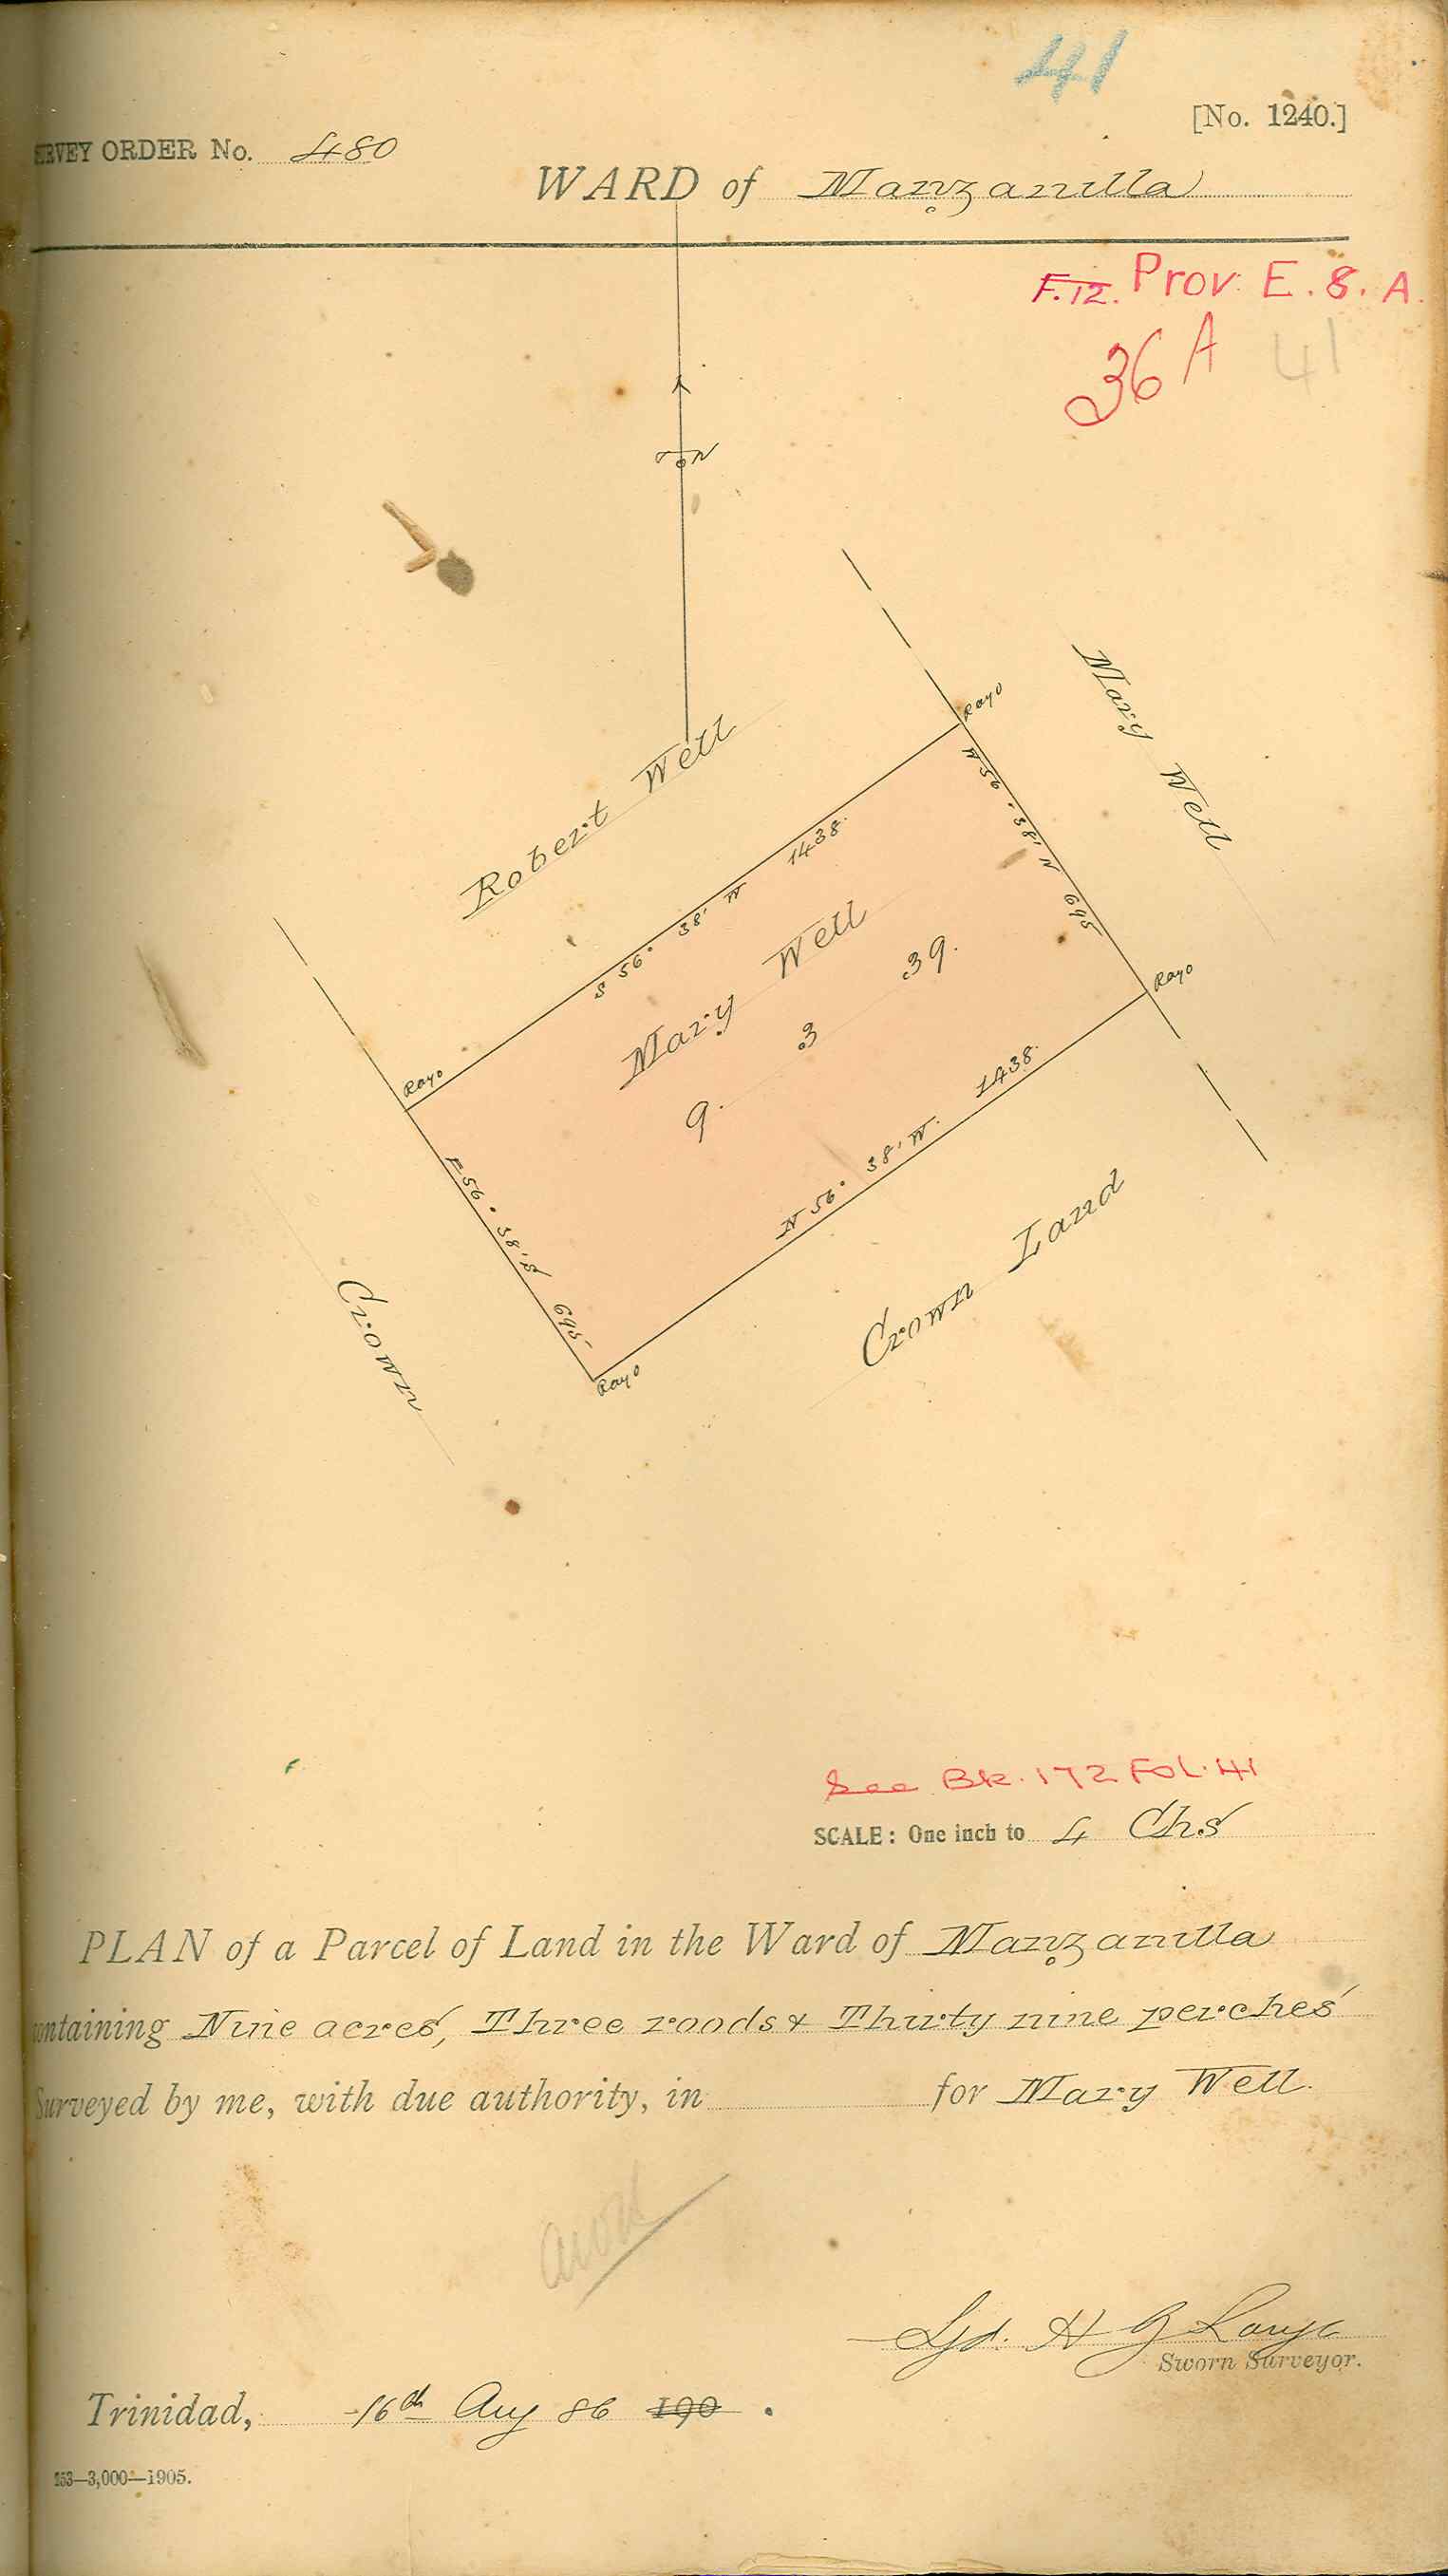 41
[No. 1240.]
RVEY ORDER No. 480
WARD of Manzanilla
F.12. Prov. E. 8. A.
36 A 41
N
Mary Well
Rayo
Robert Well
W 56° 38' N 695
S 56° 38' W 1438.
Mary Well
9. 3 39.
Rayo
Rayo
E 56° 38' S 695
N 56° 38' W. 1438.
Crown Land
Crown
Rayo
See Bk. 172 Fol. 41
SCALE: One inch to 4 Chs
PLAN of a Parcel of Land in the Ward of Manzanilla
ontaining Nine acres, Three roods & Thirty nine perches
Surveyed by me, with due authority, in for Mary Well.
Sgd. H G
Sworn Surveyor.
Trinidad, 16th Aug 86 190 .
153—3,000—1905.